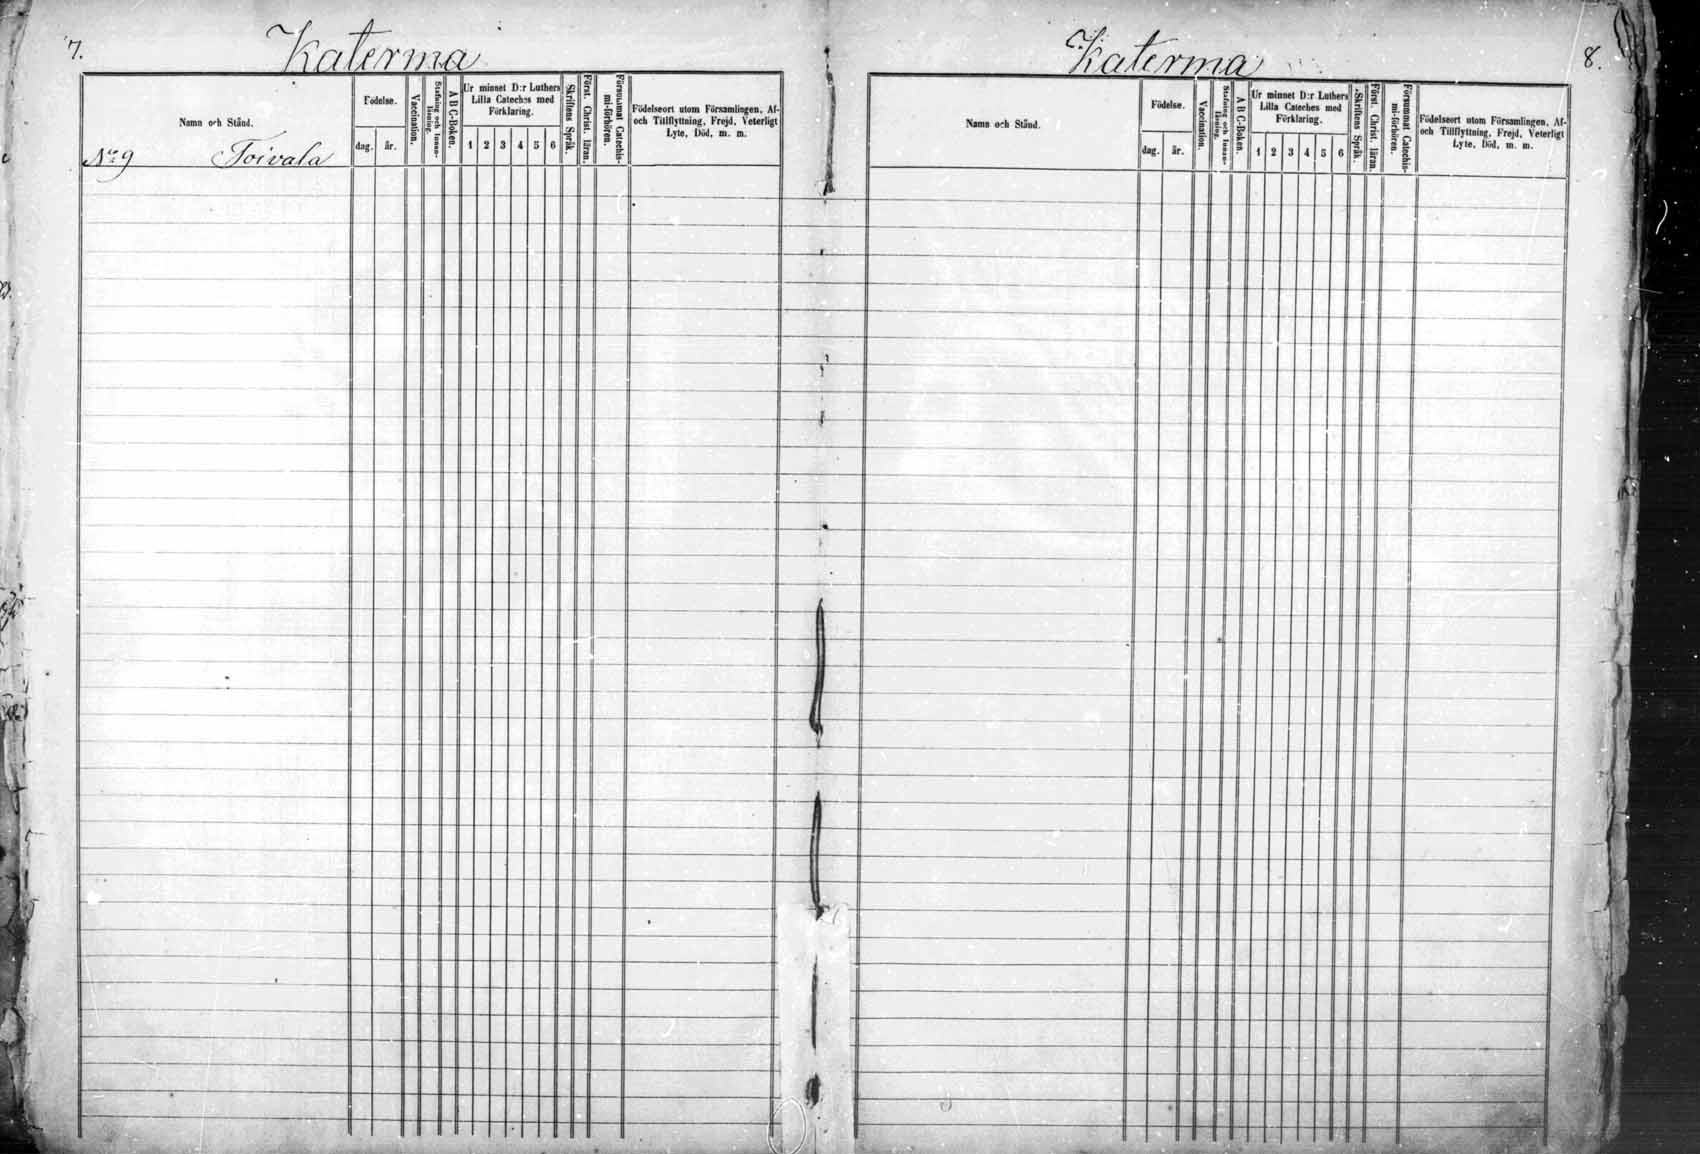 7.
Katerma
Namn och Stånd.
Födelse.
dag.
år.
Vaccination.
Stafning och Innan-
läsning.
A B C-Boken.
Ur minnet D:r Luthers
Lilla Cateches med
Förklaring.
1 2 3 4 5 6
Skriftens Språk.
Först. Christ. läran.
Försummat Catechis-
mi-förhören.
Födelseort utom Församlingen, Af-
och Tillflyttning, Frejd, Veterligt
Lyte, Död, m. m.
No 9 Toivala
Katerma
8.
Namn och Stånd.
Födelse.
dag.
år.
Vaccination.
Stafning och Innan-
läsning.
A B C-Boken.
Ur minnet D:r Luthers
Lilla Cateches med
Förklaring.
1 2 3 4 5 6
Skriftens Språk.
Först. Christ. läran.
Försummat Catechis-
mi-förhören.
Födelseort utom Församlingen, Af-
och Tillflyttning, Frejd, Veterligt
Lyte, Död, m. m.